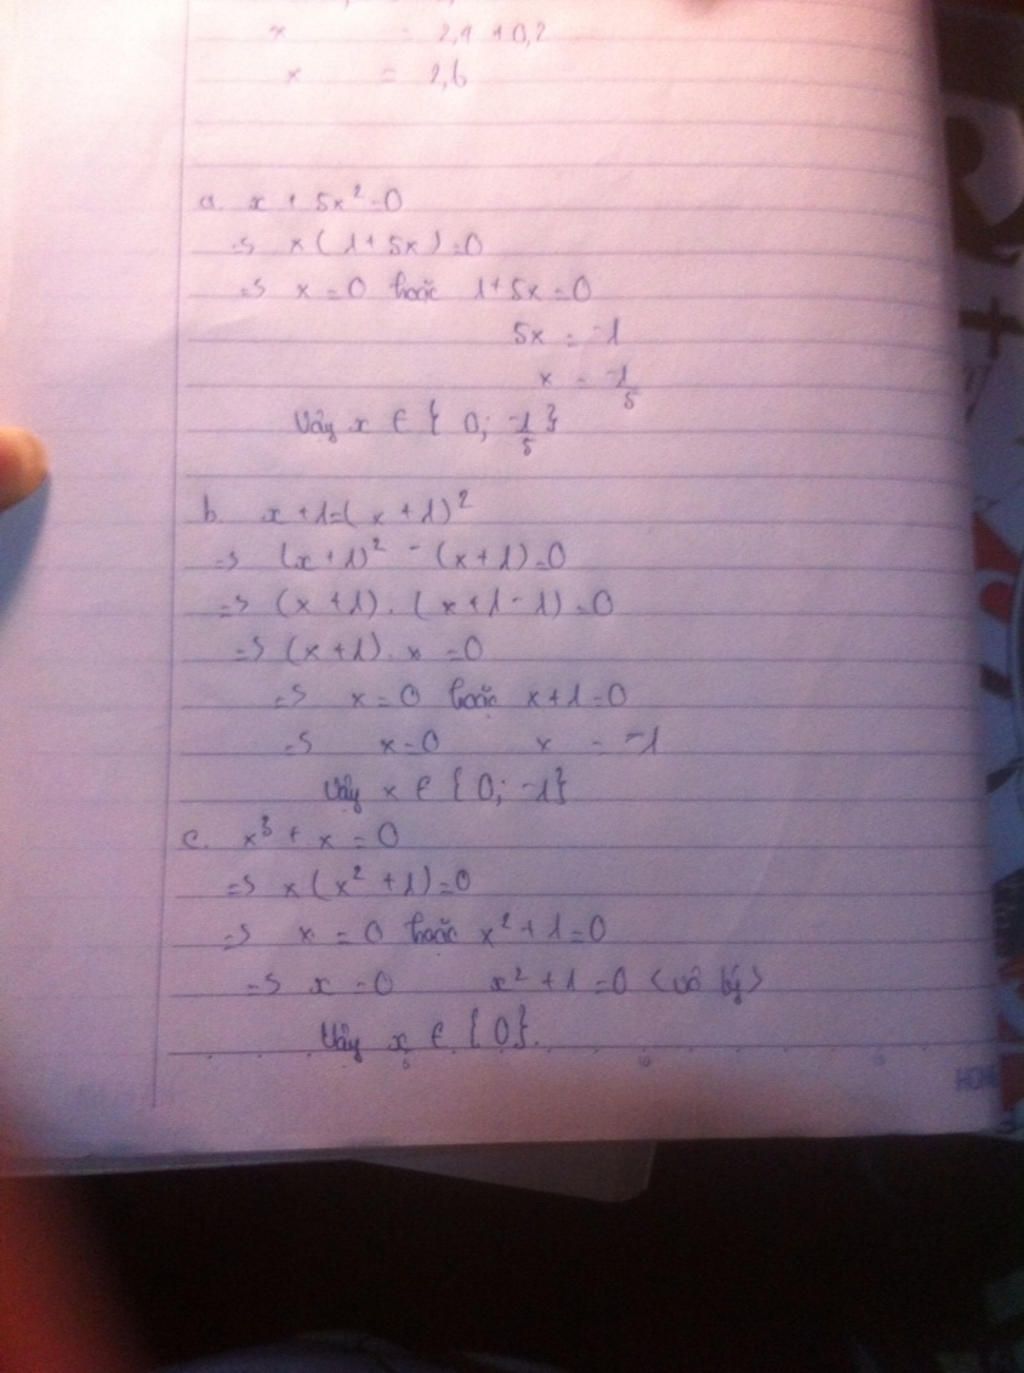 x = 2,4 + 0,2
x = 2,6
a. x + 5x² = 0
=> x(1 + 5x) = 0
=> x = 0 hoặc 1 + 5x = 0
5x = -1
x = -1/5
Vậy x ∈ { 0; -1/5 }
b. x + 1 = (x + 1)²
=> (x + 1)² - (x + 1) = 0
=> (x + 1). (x + 1 - 1) = 0
=> (x + 1). x = 0
=> x = 0 hoặc x + 1 = 0
=> x = 0 x = -1
Vậy x ∈ { 0; -1}
c. x³ + x = 0
=> x(x² + 1) = 0
=> x = 0 hoặc x² + 1 = 0
=> x = 0 x² + 1 = 0 (vô lý)
Vậy x ∈ { 0}.